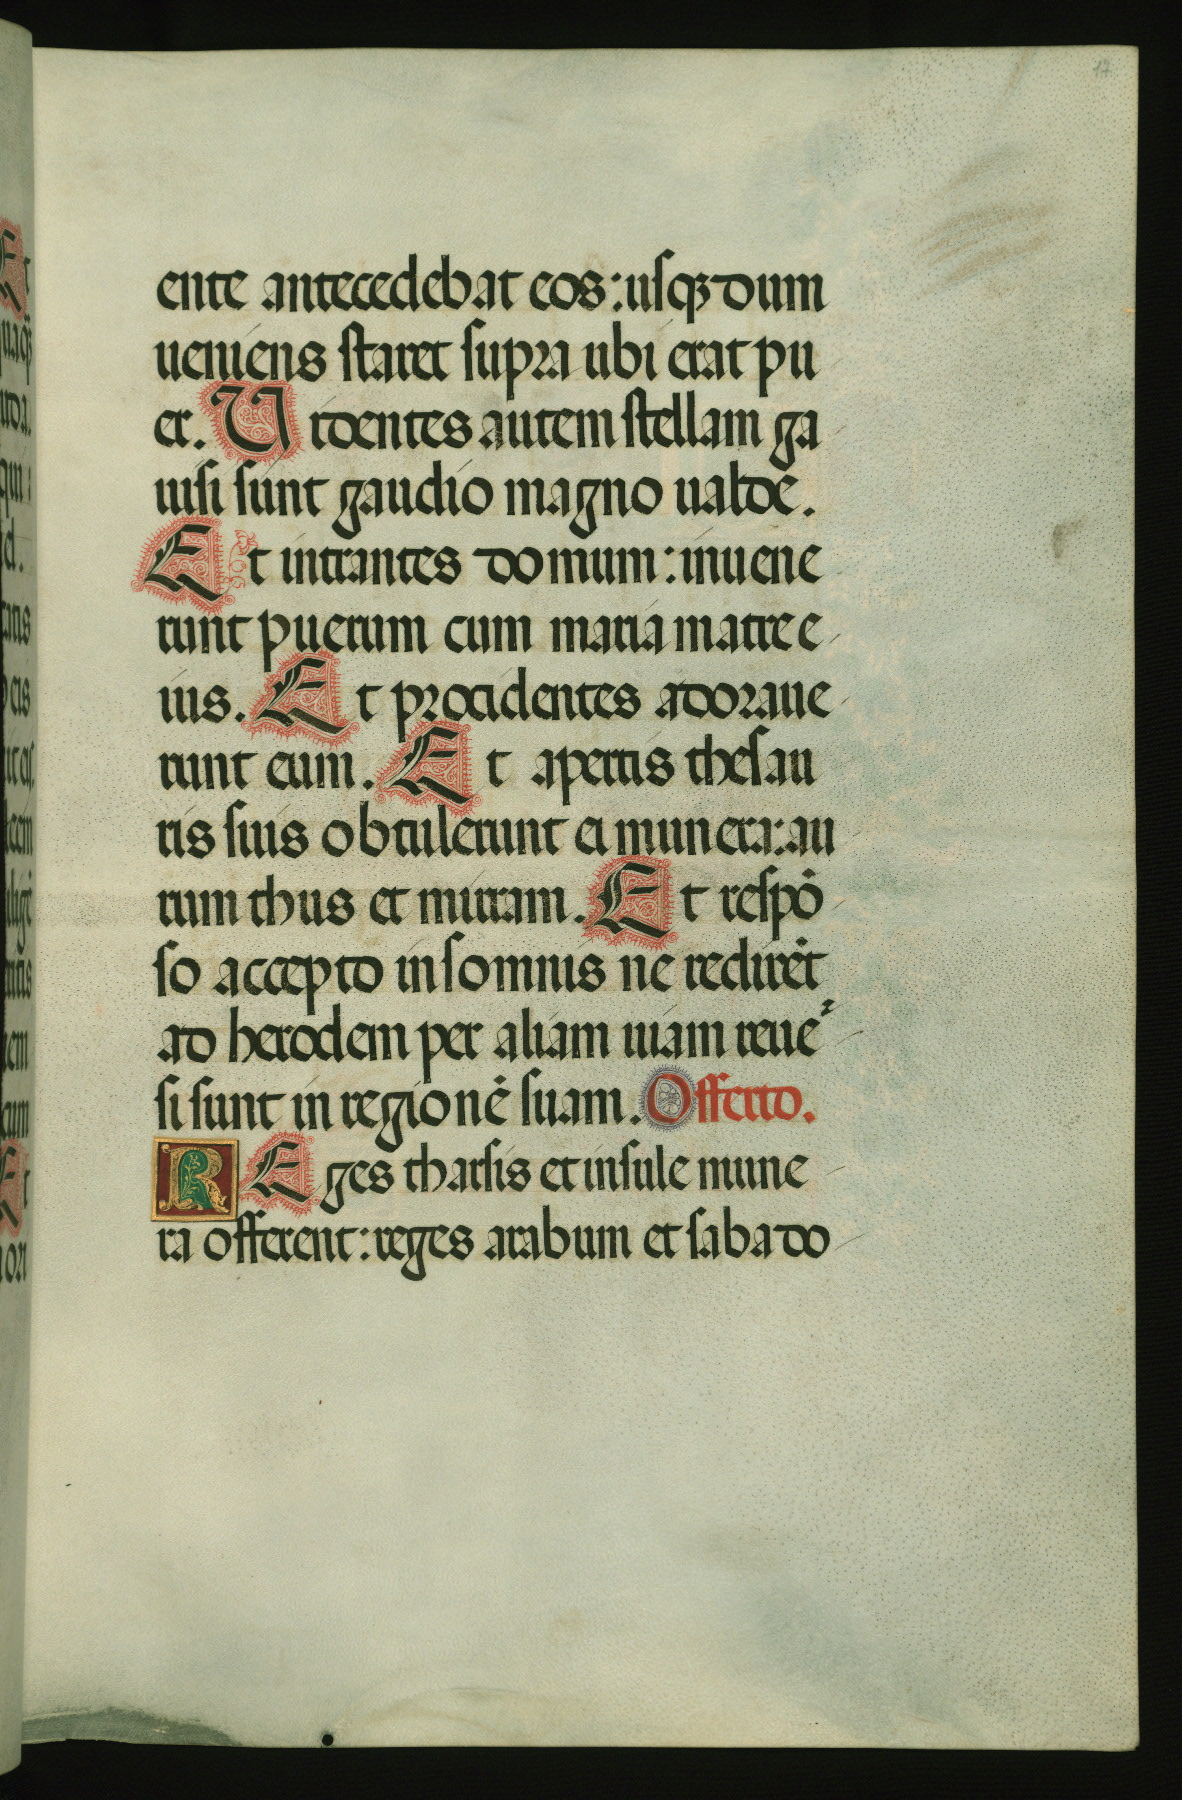 17
ente antecedebat eos: usqꝫ dum
ueniens staret supra ubi erat pu
er. Uidentes autem stellam ga
uisi sunt gaudio magno ualde.
Et intrantes domum: inuene
runt puerum cum maria matre e
ius. Et procidentes adoraue
runt eum. Et apertis thesau
ris suis obtulerunt ei munera: au
rum thus et mirram. Et respō
so accepto in somnis ne redirēt
ad herodem per aliam uiam reue²
si sunt in regionē suam. Offerto.
REges tharsis et insule mune
ra offerent: reges arabum et saba do